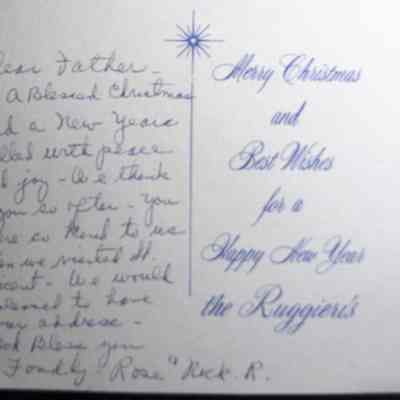 ear Father -
A Blessed Christmas
d a New Years
lled with peace
d joy - We think
you so often - You
re so kind to us
en we visited St.
cent - We would
leased to have
our address -
od Bless you
Fondly "Rose" Rick. R.
Merry Christmas
and
Best Wishes
for a
Happy New Year
the Ruggieri's